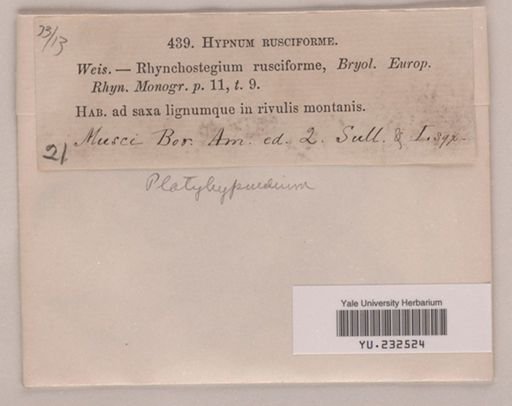 23/13
439. HYPNUM RUSCIFORME.
Weis. — Rhynchostegium rusciforme, Bryol. Europ.
Rhyn. Monogr. p. 11, t. 9.
HAB. ad saxa lignumque in rivulis montanis.
21 Musci Bor. Am. ed. 2. Sull. &
Platyhypnidium
Yale University Herbarium
YU.232524